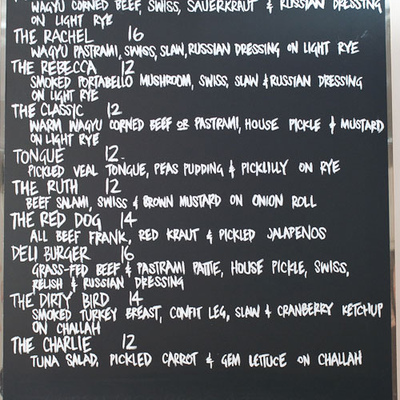 WAGYU CORNED BEEF, SWISS, SAUERKRAUT & RUSSIAN DRESSING
ON LIGHT RYE
THE RACHEL 16
WAGYU PASTRAMI, SWISS, SLAW, RUSSIAN DRESSING ON LIGHT RYE
THE REBECCA 12
SMOKED PORTABELLO MUSHROOM, SWISS, SLAW & RUSSIAN DRESSING
ON LIGHT RYE
THE CLASSIC 12
WARM WAGYU CORNED BEEF OR PASTRAMI, HOUSE PICKLE & MUSTARD
ON LIGHT RYE
TONGUE 12
PICKLED VEAL TONGUE, PEAS PUDDING & PICKLILLY ON RYE
THE RUTH 12
BEEF SALAMI, SWISS & BROWN MUSTARD ON ONION ROLL
THE RED DOG 14
ALL BEEF FRANK, RED KRAUT & PICKLED JALAPENOS
DELI BURGER 16
GRASS-FED BEEF & PASTRAMI PATTIE, HOUSE PICKLE, SWISS,
RELISH & RUSSIAN DRESSING
THE DIRTY BIRD 14
SMOKED TURKEY BREAST, CONFIT LEG, SLAW & CRANBERRY KETCHUP
ON CHALLAH
THE CHARLIE 12
TUNA SALAD, PICKLED CARROT & GEM LETTUCE ON CHALLAH